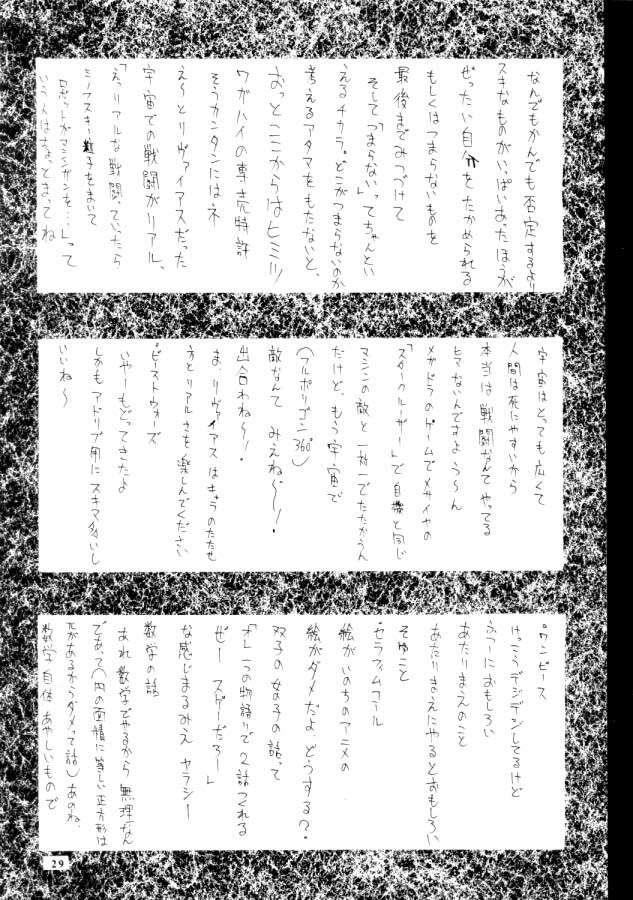 なんでもかんでも否定するより
スキなものがいっぱいあったほうが
ぜったい自分をたかめられる
もしくはつまらないものを
最後までみつづけて
そして「つまらない」ってちゃんとい
えるチカラ。どこがつまらないのか
考えるアタマをもたないと、
おっとここからはヒミツ
ワガハイの専売特許
そうカンタンにはネ
え〜とリヴァイアスだった
宇宙での戦闘がリアル、
「えっリアルな戦闘っていったら
ミノフスキー粒子をまいて
ロボットがマシンガンを…」って
いう人はちょっとまってね
宇宙はとっても広くて
人間は死にやすいから
本当は戦闘なんてやってる
ヒマないんですよ う〜ん
メガドラのゲームでメサイヤの
「スタークルーザー」で自機と同じ
マシンの敵と一対一でたたかうん
だけど、もう宇宙で
(フルポリゴン360°)
敵なんて みえね〜〜!
出合わね〜!
ま、リヴァイアスはキャラのたたせ
方とリアルさを楽しんでください
°ビーストウォーズ
いやーもどってきたよ
しかもアドリブ用にスキマ多いし
いいね〜
°ワンピース
けっこうデジデジしてるけど
ふつーにおもしろい
あたりまえのこと
あたりまえにやるとおもしろい
そゆこと
°セラフィムコール
絵がいのちのアニメの
絵がダメだよ、どうする?
双子の女の子の話って
「オレ一つの物語りで2話つくれる
ぜー スゲーだろー」
な感じまるみえ ヤラシー
数学の話
あれ数学でやるから無理なん
であって(円の面積に等しい正方形は
πがあるからダメって話)あのね、
数学自体 あやしいもので
29